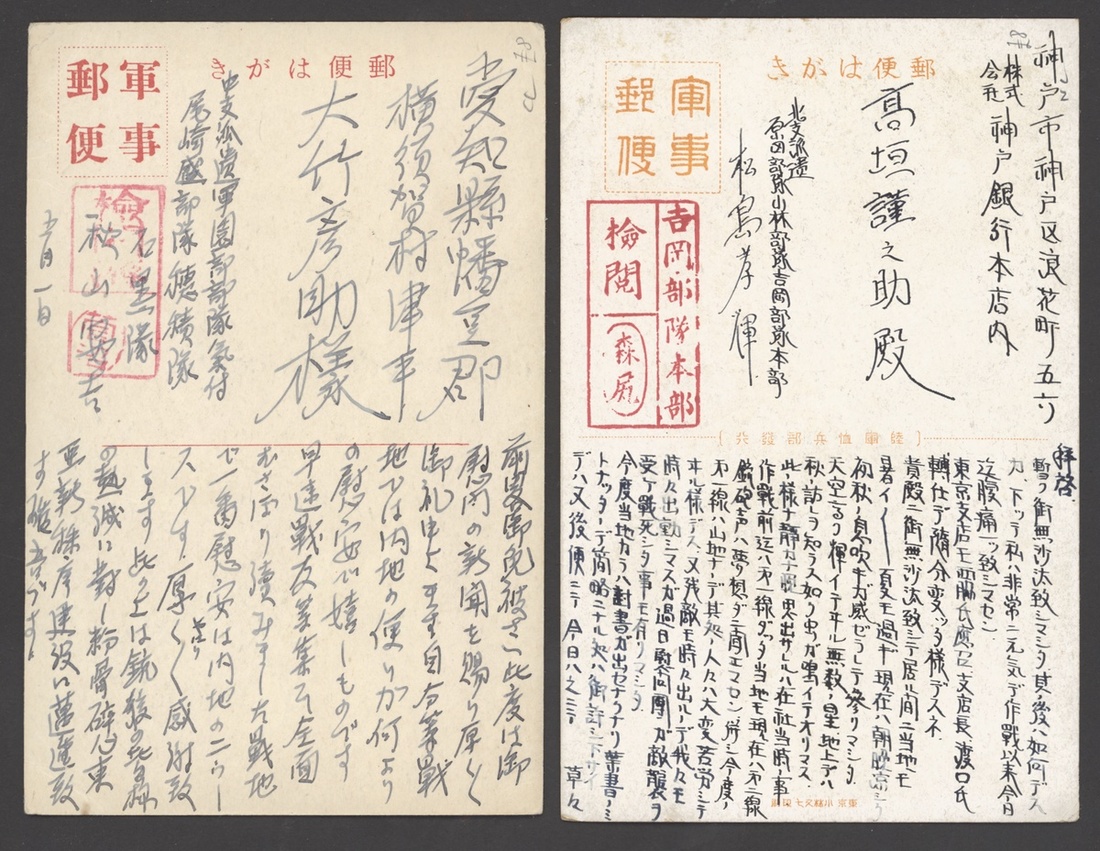 郵便はがき
軍事
郵便
愛知縣幡豆郡
横須賀村津平
大竹彦助様
中支派遣軍園部部隊氣付
尾崎盛部隊穂積隊
石黒隊
五月一日
前畧御免被さい此度は御
慰問の新聞を賜り厚く
御礼申上ます自分等戰
地では内地の便りが何より
の慰安で嬉しものです
早速戰友等集て全面
むさぼり讀みました戰地
で一番慰安は内地のニウー
スです厚く感謝致
します此の上は銃後の皆様
の熱誠に對し粉骨碎心東
亜新秩序建設に邁進致
す
郵便はがき
軍事
郵便
神戸市神戸区浪花町五六
株式会社神戸銀行本店内
高垣謹之助殿
北支派遣
原田部隊山林部隊吉岡部隊本部
松島孝輝
吉岡部隊本部
檢閲
陸軍恤兵部發行
拝啓
暫ク御無沙汰致シマシタ其ノ後ハ如何デス
カ、下ッテ私ハ非常ニ元気デ作戰以来今日
迄腹痛一ツ致シマセン
東京支店モ 支店長、渡口氏
轉任デ隨分変ッタ様デスネ
貴殿ニ御無沙汰致シテ居ル間ニ当地モ
暑イ〱夏モ過ギ現在ハ朝晩涼シク
初秋ノ息吹キガ感ゼラレテ参リマシタ
天空ニハ輝イテヰル無数ノ星地上デハ
秋ノ訪レヲ知ラス如ク虫ガ鳴イテオリマス
此ノ様ナ静カナ時思出サルヽハ在社当時ノ事
作戰前迄ハ第一線ダッタ当地モ現在ハ第二線
銃砲声ハ夢ノ想ダニ聞エマセン、併シ今度ノ
第一線ハ山地ナノデ其処ノ人々ハ大変苦労シテ
ヰル様デス、又残敵モ時々出ルノデ我々モ
時々出動シマスガ過日慰問團ガ敵襲ヲ
受ケ戰死シタ事モ有リマシタ
今度当地カラハ封書ガ出セナクナリ葉書ノミ
トナッタノデ簡略ニナル処ハ御許シ下サイ
デハ又後便ニテ今日ハ之ニテ 草々
東京 小林又七印刷